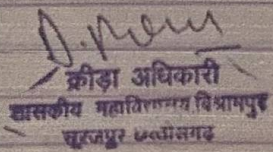 क्रीड़ा अधिकारी
शासकीय महाविद्यालय विश्रामपुर
सूरजपुर छत्तीसगढ़